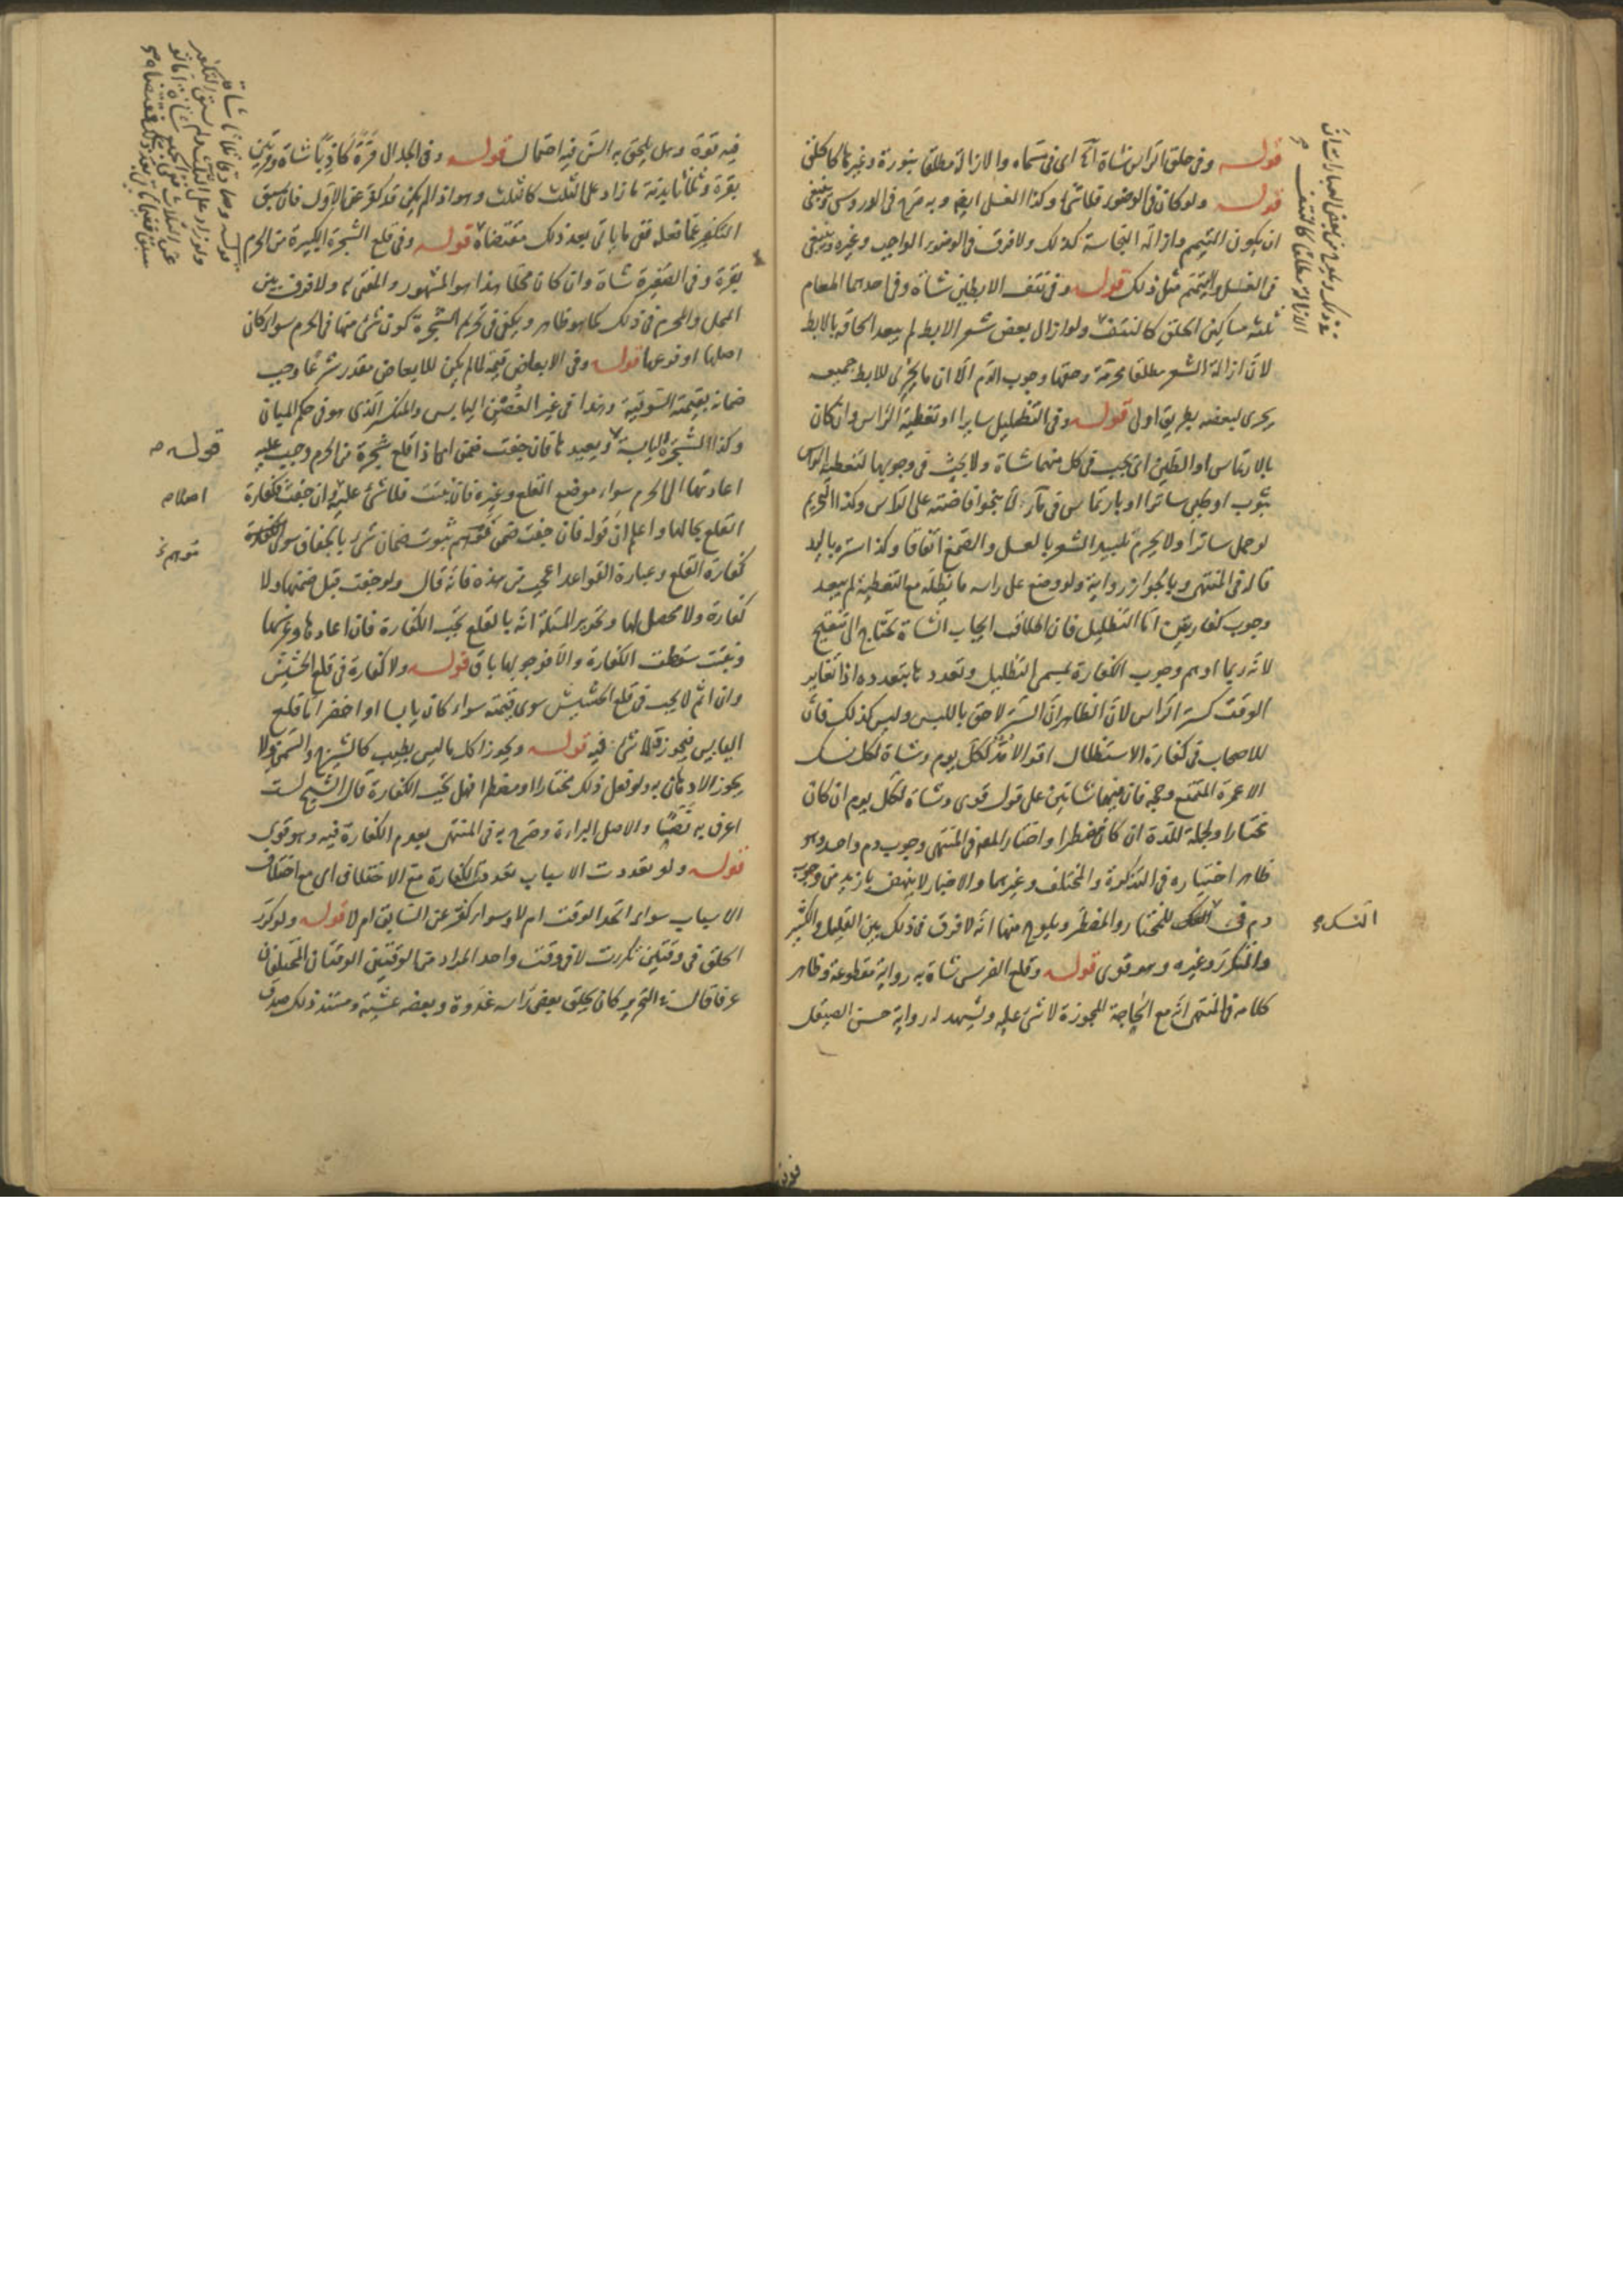 قوله وفى حلق الراس شاة آه اى فى مسماه والازالة مطلقا بنورة وغيرها كالحلق
قوله ولو كان فى الوضوء فلا شئ وكذا الغسل ايض وبه صرح فى الدروس وينبغى
ان يكون التيمم وازالة النجاسة كذلك ولا فرق فى الوضوء الواجب وغيره وينبغى
فى الغسل والتيمم مثل ذلك قوله وفى نتف الابطين شاة وفى احدهما اطعام
ثلثة مساكين الحلق كالنتف ولو ازال بعض شعر الابط لم يبعد الحاقه بالابط
لان ازالة الشعر مطلقا محرمة وحقها وجوب الدم الا ان ما يجزى للابط جميعه
يجزى لبعضه بطريق اولى قوله وفى التظليل سايرا او تغطية الراس وان كان
بالارتماس او الطين اى يجب فى كل منهما شاة ولا بحث فى وجوبها لتغطية الراس
بثوب او طين ساترا او بارتماس فى ماء لا بنحو افاضته على الراس وكذا التحريم
لو حمل ساترا ولا يحرم تلبيد الشعر بالعسل والصمغ اتفاقا وكذا ستره باليد
قاله فى المنتهى وبالجواز رواية ولو وضع على راسه ما يظله مع التغطية لم يبعد
وجوب كفارتين اما التظليل فان اطلاق ايجاب الشاة يحتاج الى تنقيح
لانه ربما اوهم وجوب الكفارة بمسمى التظليل وتعدد ها بتعدده اذا تغاير
الوقت كستر الراس لان الظاهر ان الستر لاحق باللبس وليس كذلك فان
للاصحاب فى كفارة الاستظلال اقوالا مد لكل يوم وشاة لكل نسك
الا عمرة المتمتع وحجه فان فيهما شاتين على قول قوى وشاة لكل يوم ان كان
مختارا ولجملة المدة ان كان مضطرا واختار المصه فى المنتهى وجوب دم واحد وهو
ظاهر اختياره فى التذكرة والمختلف وغيرهما والاخبار لا ينهض بازيد من وجوب
دم فى النسك للمختار والمضطر ويلوح منها انه لا فرق فى ذلك بين القليل والكثير
والمتكرر وغيره وهو قوى قوله وقلع الضرس شاة به رواية مقطوعة وظاهر
كلامه فى المنتهى انه مع الحاجة المجوزة لا شئ عليه ويشهد له رواية حسن الصيقل
النسك
فيه قوة وهل يلحق به السن فيه احتمال قوله وفى الجدال مرة كاذبا شاة ومرتين
بقرة وثلثا بدنة ما زاد على الثلث كالثلث وهو اذا لم يكن قد كفر عن الاول فان سبق
التكفير عما فعله ففى ما ياتى بعد ذلك مقتضاه قوله وفى قلع الشجرة الكبيرة من الحرم
بقرة وفى الصغيرة شاة وان كان محلا هذا هو المشهور والمفتى به ولا فرق بين
المحل والمحرم فى ذلك كما هو ظاهر ويكفى فى تحريم الشجرة كون شئ منها فى الحرم سواء كان
اصلها او فرعها قوله وفى الابعاض قيمة لما لم يكن للابعاض مقدر شرعا وجب
ضمانه بقيمته السوقية وهذا فى غير الغصن اليابس والمنكسر الذى هو فى حكم المبان
وكذا الشجرة اليابسة ويعيد ها فان جفت ضمن اى اذا قلع شجرة من الحرم وجب عليه
اعادتها الى الحرم سواء موضع القلع وغيره فان نبتت فلا شئ عليه وان جفت فكفارة
القلع بحالها واعلم ان قوله فان جفت ضمن قد يوهم ثبوت ضمان شئ بالجفاف سوى الكفارة
كفارة القلع وعبارة القواعد اعجب من هذه فانه قال ولو جفت قيل ضمنها ولا
كفارة ولا محصل لها وتحرير المسئلة انه بالقلع تجب الكفارة فان اعاد ها وغرسها
ونبتت سقطت الكفارة والا فوجوبها باق قوله ولا كفارة فى قلع الحشيش
وان اثم لا يجب فى قلع الحشيش سوى قيمته سواء كان يابسا او اخضر اما قلع
اليابس فيجوز فلا شئ فيه قوله ويجوز اكل ما ليس بطيب كالشيرج والسمن ولا
يجوز الادهان به ولو فعل ذلك مختارا او مضطرا فهل تجب الكفارة قال الشيخ لست
اعرف به نصا والاصل البراءة وصرح به فى المنتهى بعدم الكفارة فيه وهو قوى
قوله ولو تعددت الاسباب تعددت الكفارة مع الاختلاف اى مع اختلاف
الاسباب سواء اتحد الوقت ام لا وسواء كفر عن السابق ام لا قوله ولو كرر
الحلق فى وقتين تكررت لا فى وقت واحد المراد من الوقتين الوقتان المختلفان
عرفا قال فى التحرير كان يحلق بعض راسه غدوة وبعضه عشية ومستند ذلك صدق
قوله
اصلاه
توهم